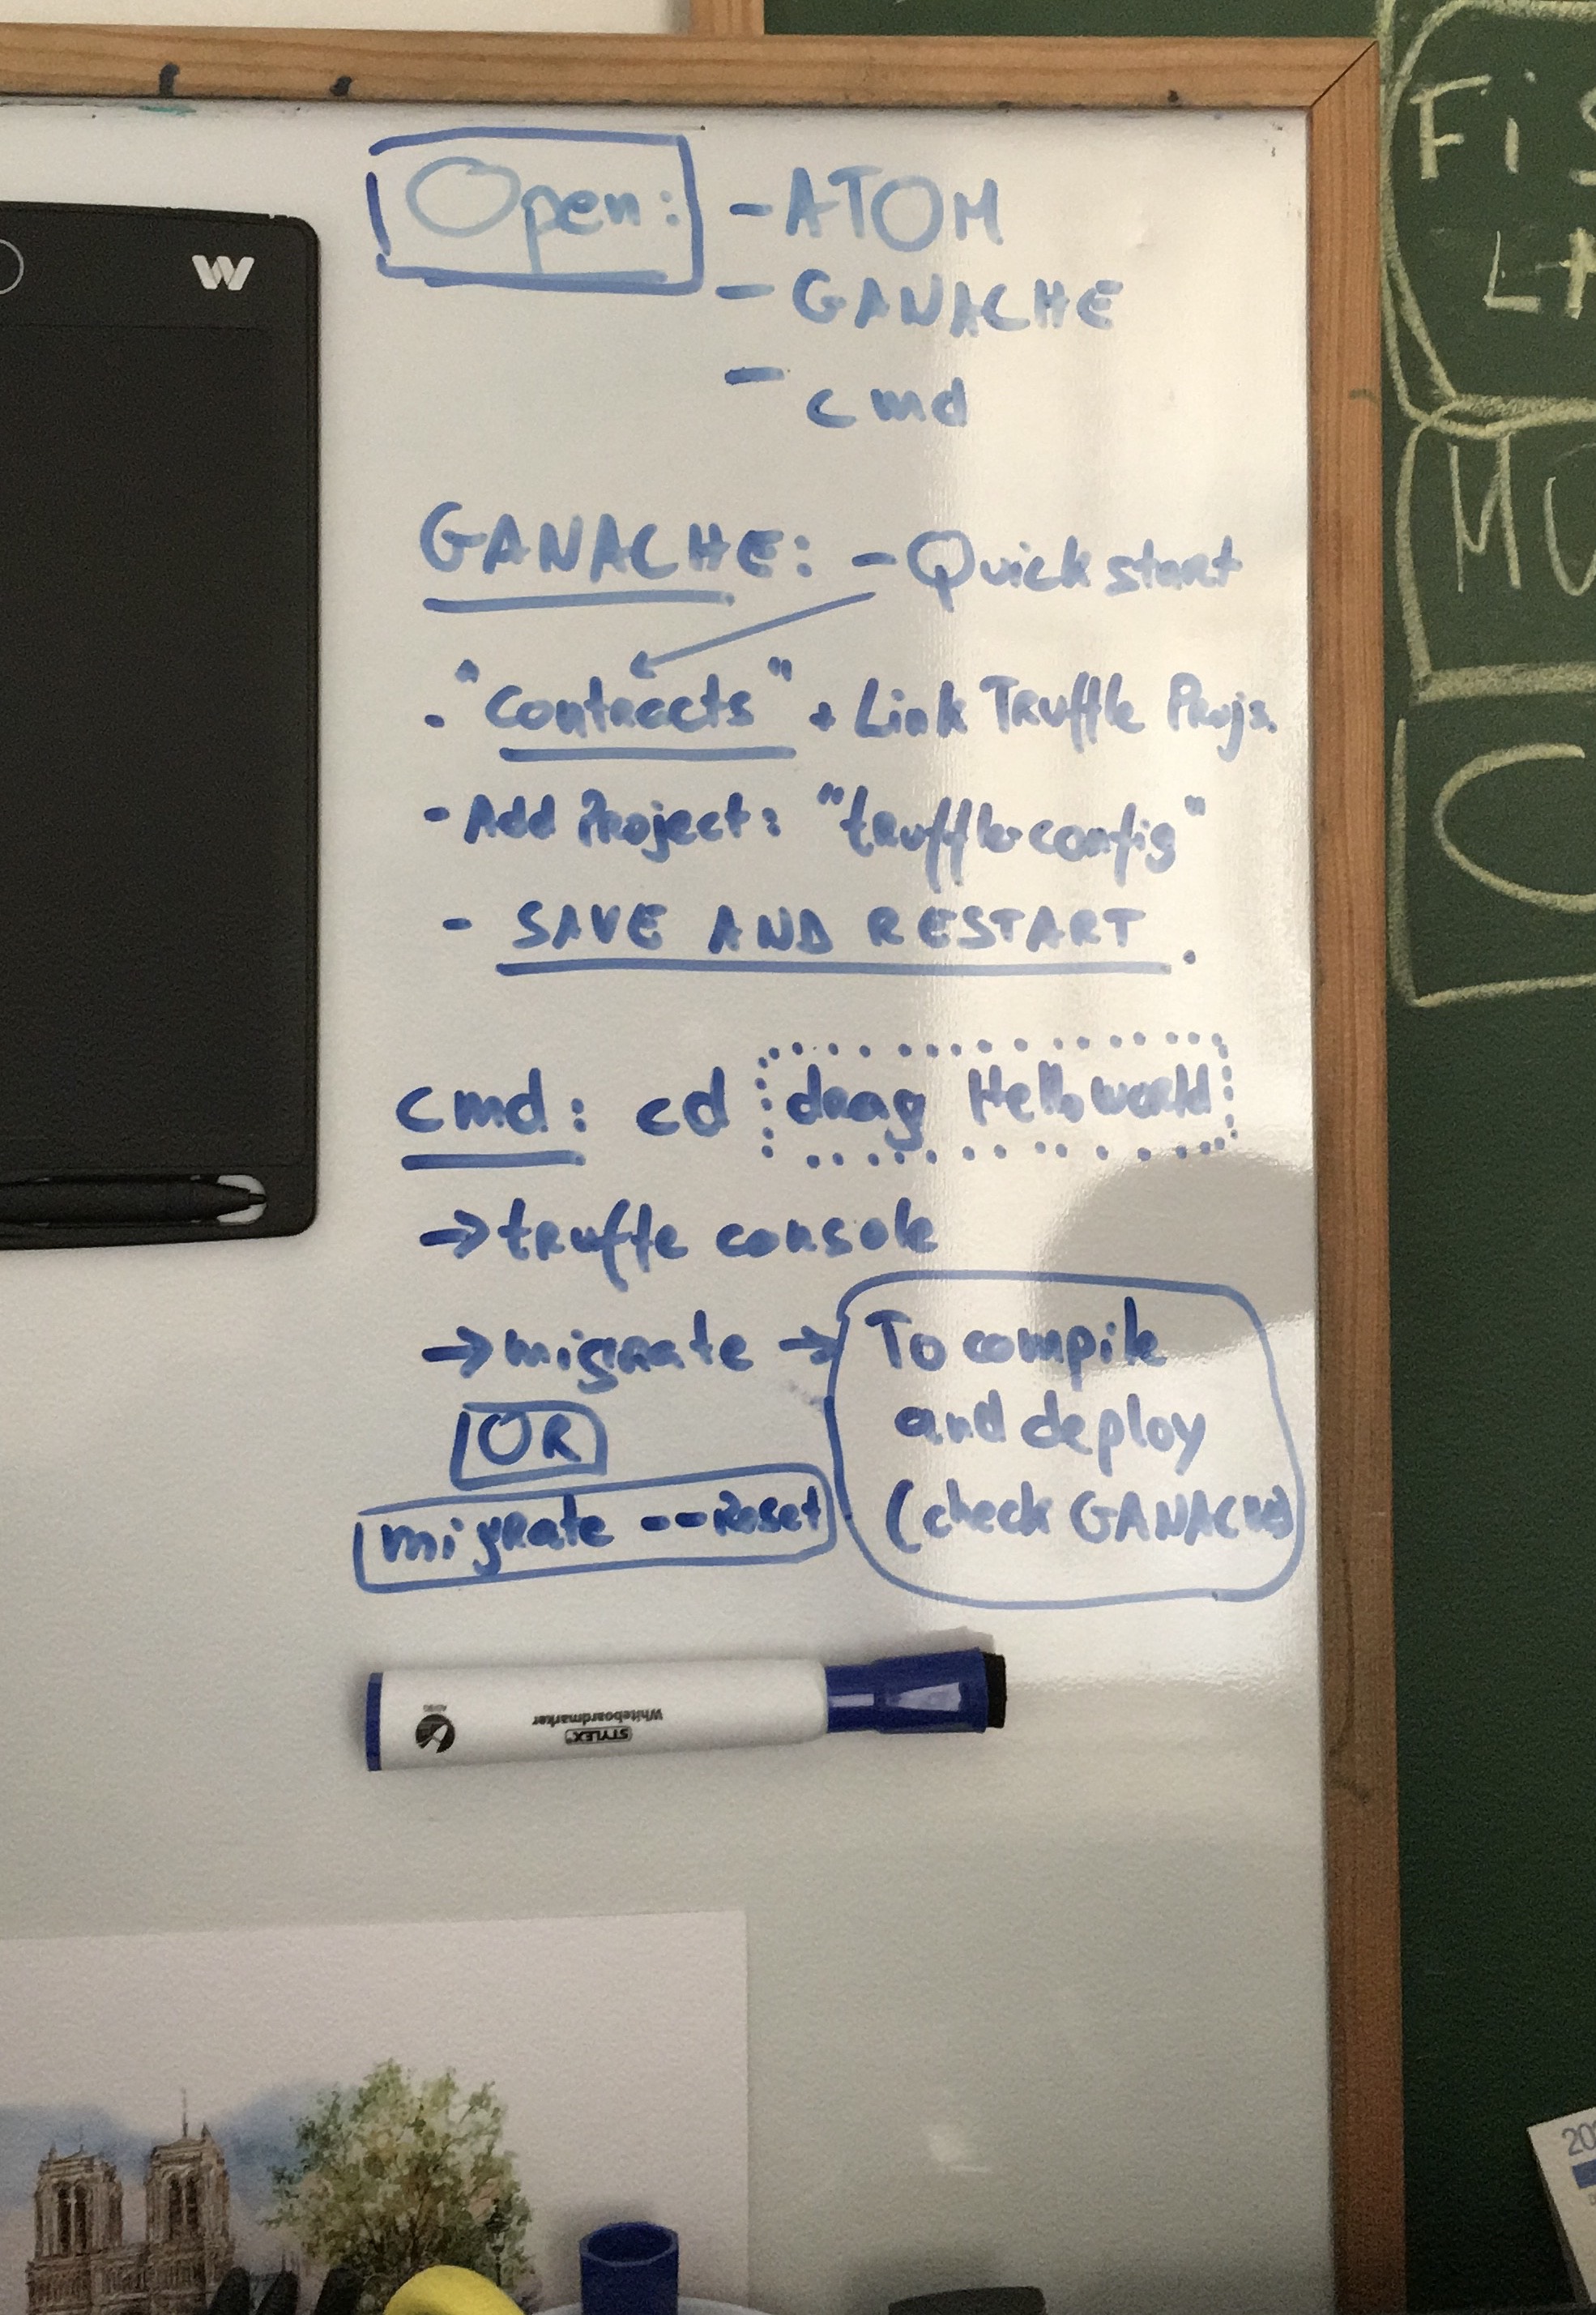 Open: - ATOM
- GANACHE
- cmd
GANACHE: - Quickstart
- "Contracts" + Link Truffle Projs.
- Add Project: "truffle-config"
- SAVE AND RESTART.
cmd: cd drag Helloworld
→ truffle console
→ migrate → To compile
and deploy
(check GANACHE)
OR
migrate --Reset
W
STYLEX
Whiteboardmarker
Fis
MU
C